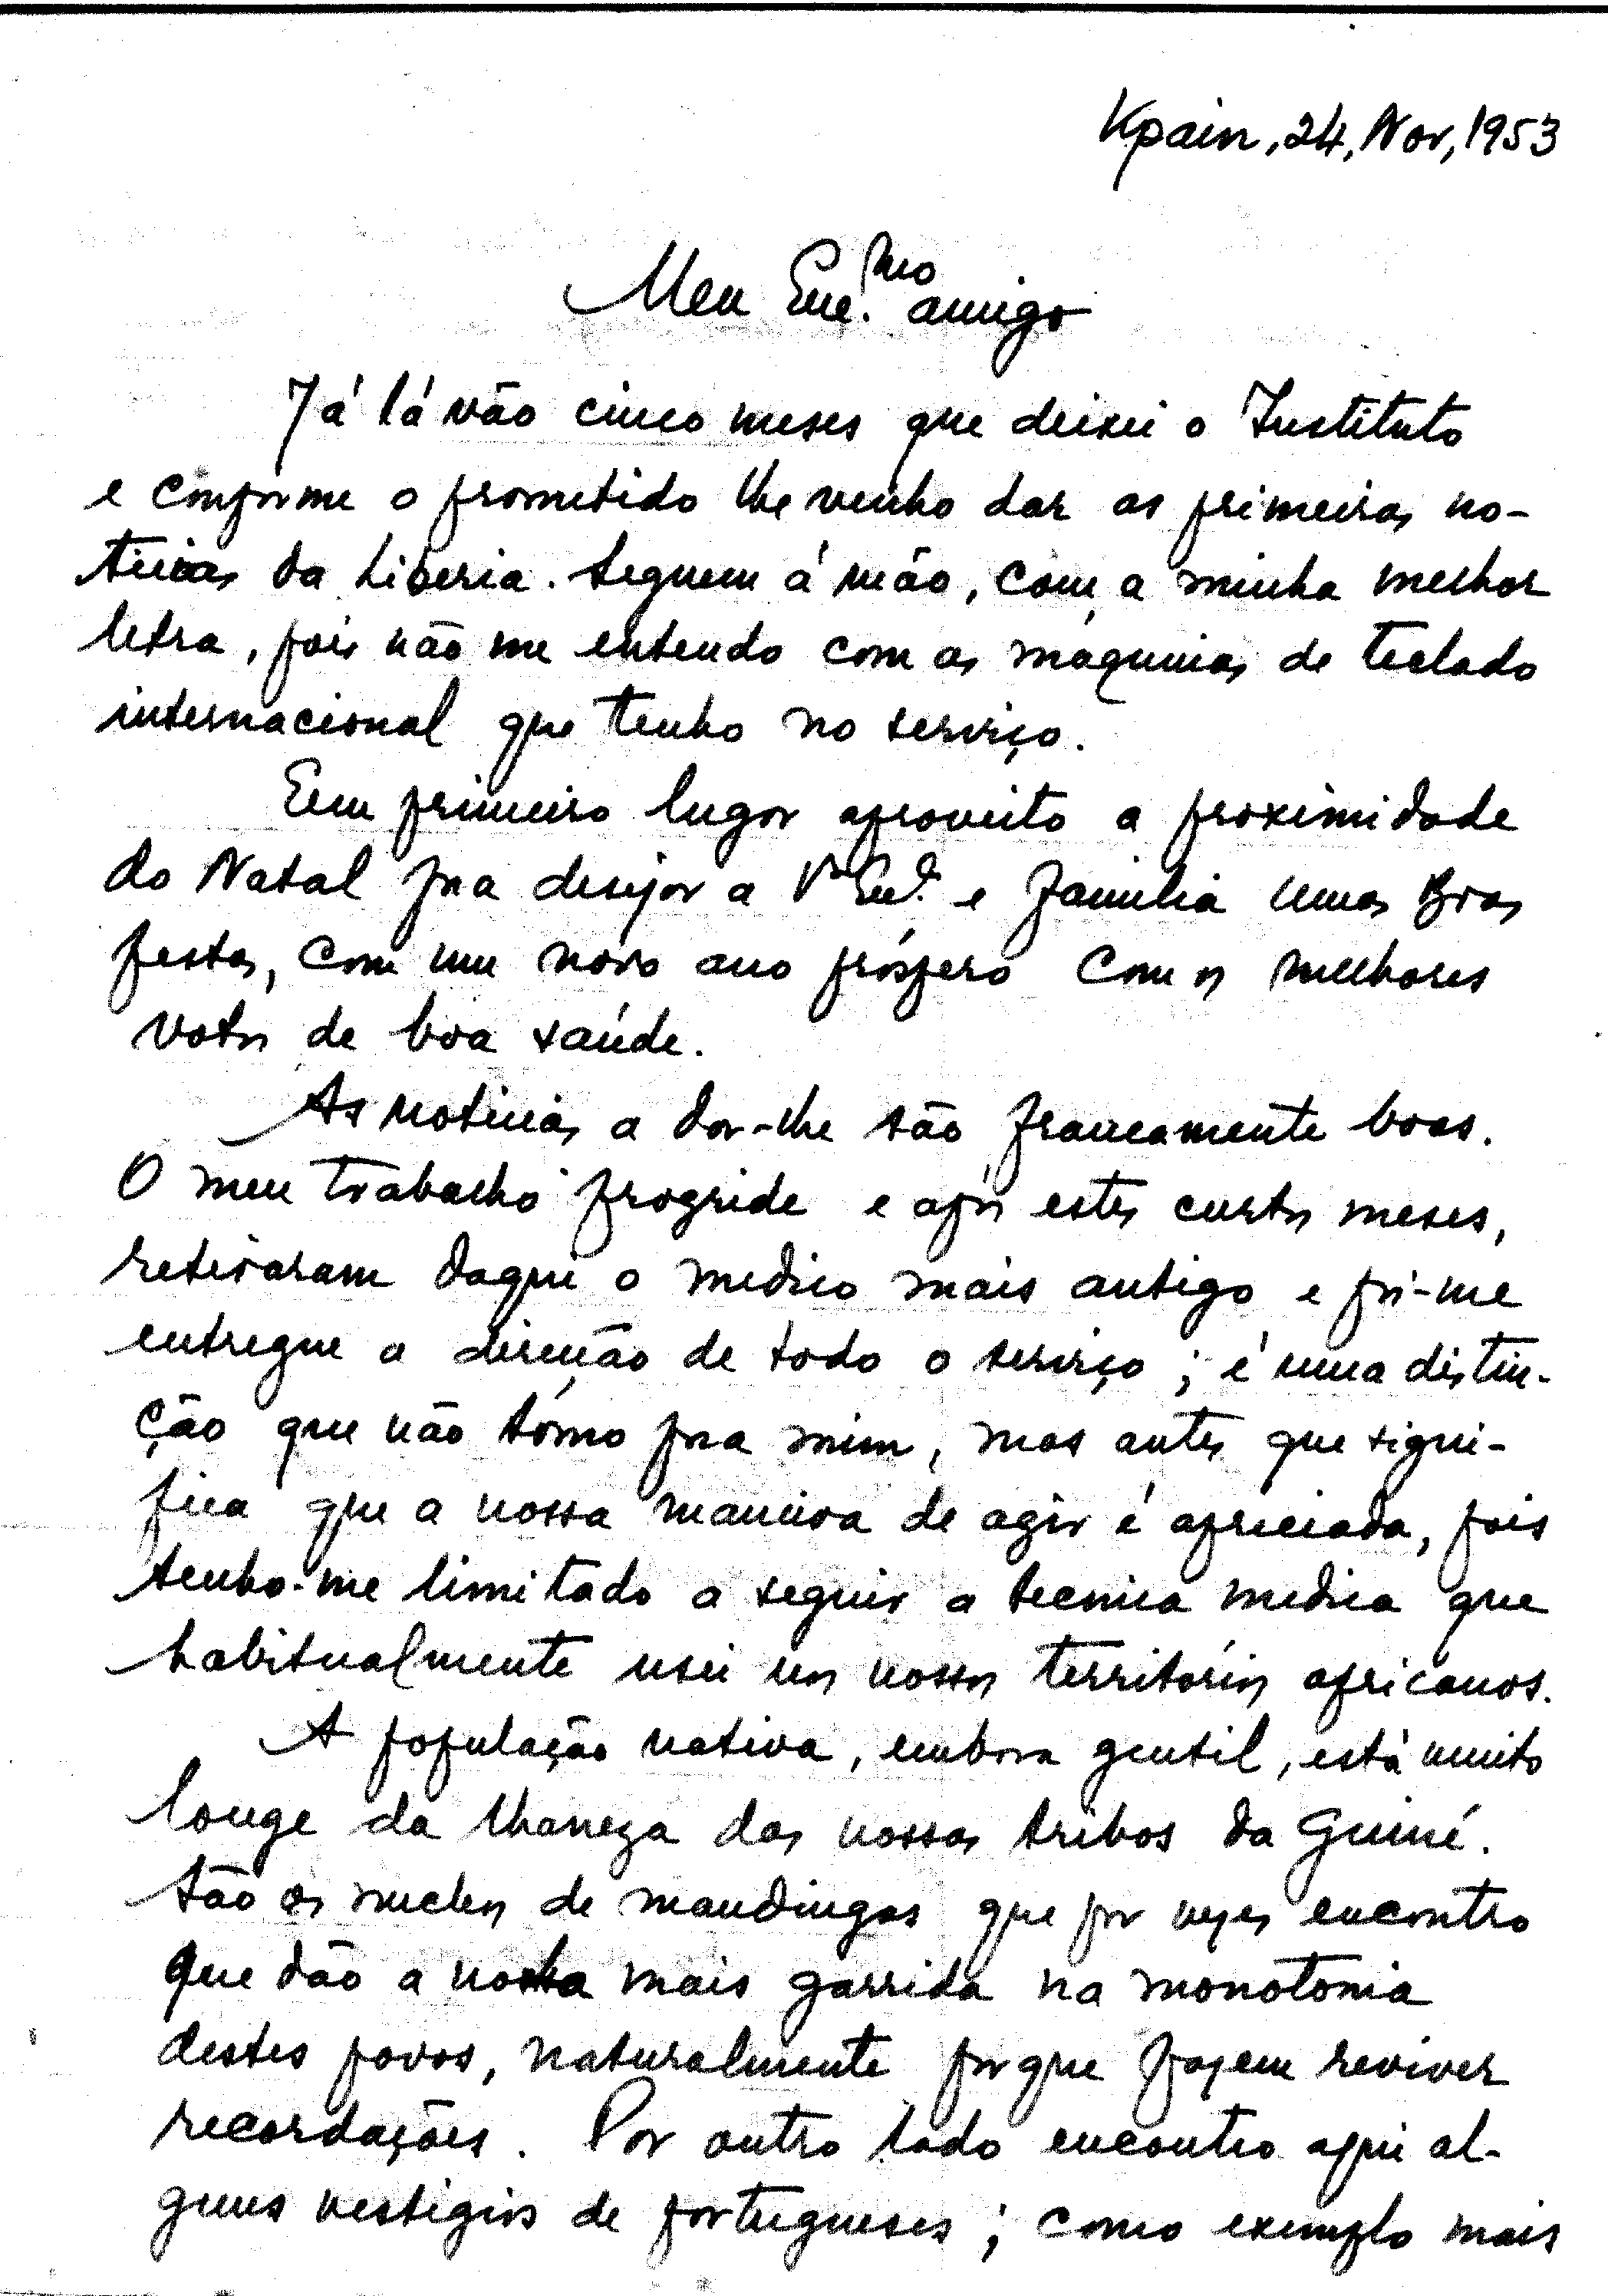 Kpain, 24, Nov, 1953
Meu Exc.mo amigo
Já lá vão cinco meses que deixei o Instituto
e conforme o prometido lhe venho dar as primeiras no-
ticias da Liberia. Seguem á mão, com a minha melhor
letra, pois não me entendo com as maquinas de teclado
internacional que tenho no serviço.
Em primeiro lugar aproveito a proximidade
do Natal pra desejar a V. Exc.a e familia umas Boas
festas, com um novo ano próspero com os melhores
votos de boa saúde.
As noticias a dar-lhe são francamente boas.
O meu trabalho progride e após estes curtos meses,
retiraram daqui o medico mais antigo e foi-me
entregue a direcção de todo o serviço; é uma distin-
ção que não tómo pra mim, mas antes que signi-
fica que a nossa maneira de agir é apreciada, pois
tenho-me limitado a seguir a tecnica medica que
habitualmente usei nos nossos territórios africanos.
A população nativa, embora gentil, está muito
longe da lhaneza das nossas tribos da Guiné.
São os nucleos de mandingas que por vezes encontro
que dão a nota mais garrida na monotonia
destes povos, naturalmente porque fazem reviver
recordações. Por outro lado encontro aqui al-
guns vestigios de portugueses; como exemplo mais